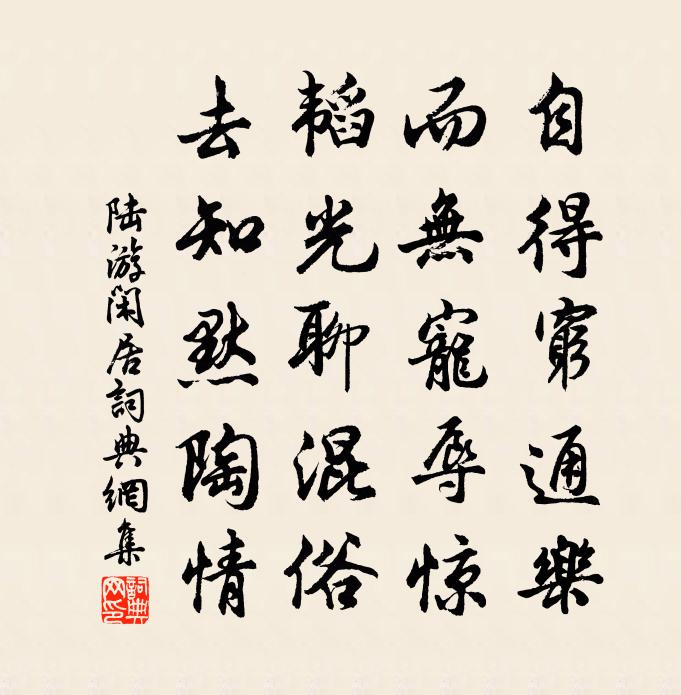 自得窮通樂
而無寵辱惊
韜光聊混俗
去知默陶情
陆游閑居詞典網集
詞典网印